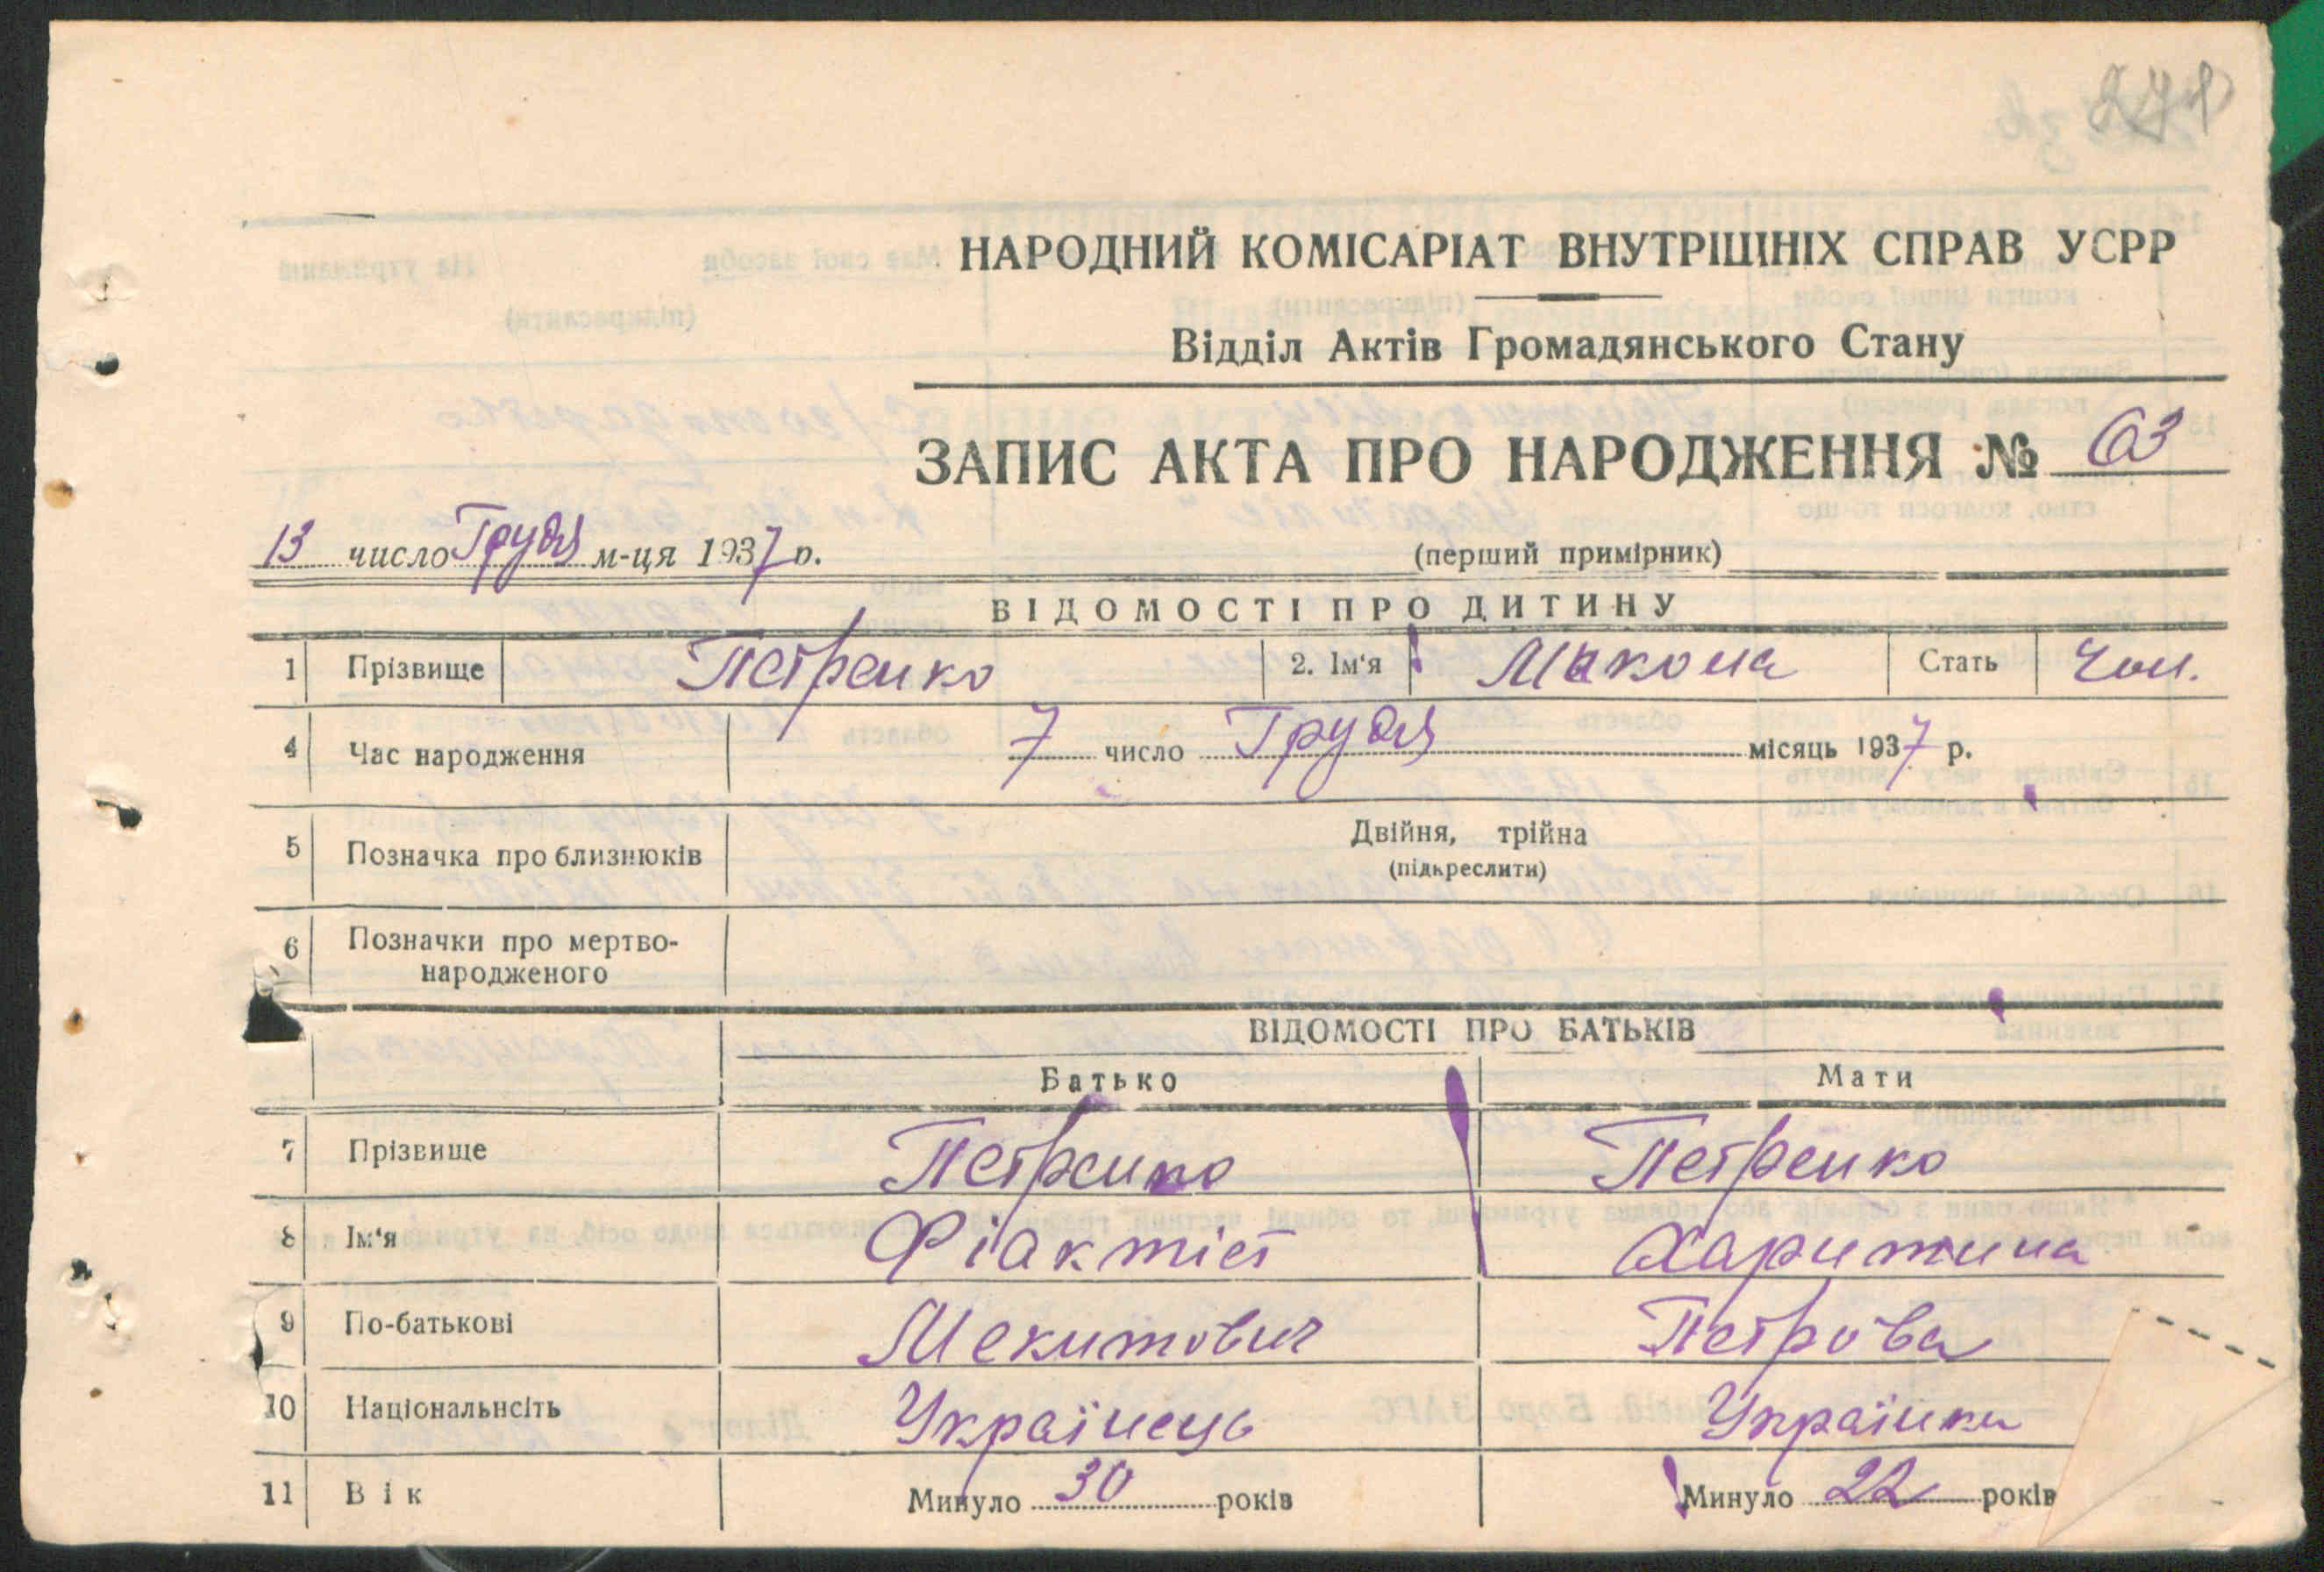 НАРОДНИЙ КОМІСАРІАТ ВНУТРІШНІХ СПРАВ УСРР
Відділ Актів Громадянського Стану
ЗАПИС АКТА ПРО НАРОДЖЕННЯ № 63
13 число Грудя м-ця 1937 р.
(перший примірник)
ВІДОМОСТІ ПРО ДИТИНУ
1 Прізвище Петренко 2. Ім'я Микола Стать Чол.
4 Час народження 7 число Грудя місяць 1937 р.
5 Позначка про близнюків Двійня, трійна
(підкреслити)
6 Позначки про мертво-
народженого
ВІДОМОСТІ ПРО БАТЬКІВ
Батько Мати
7 Прізвище Петренко Петренко
8 Ім'я Фіактист Харитина
9 По-батькові Мекитович Петрова
10 Національнсіть Українець Українка
11 Вік Минуло 30 років Минуло 22 років